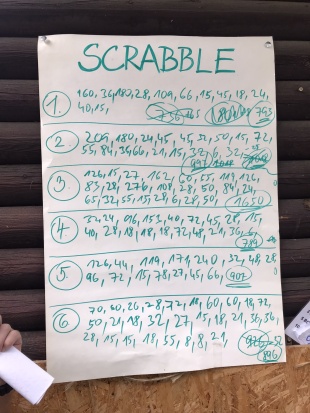 SCRABBLE
1. 160, 36, 180, 28, 109, 66, 15, 45, 18, 24,
40, 15, 793
2. 209, 180, 24, 45, 45, 32, 50, 15, 72,
55, 84, 36, 66, 21, 15, 32, 6, 32
3 126, 15, 27, 162, 60, 55, 119, 126,
83, 28, 276, 108, 28, 50, 84, 24,
65, 32, 55, 15, 28, 6, 28, 50, 1650
4. 32, 24, 96, 153, 40, 72, 45, 28, 15,
40, 28, 18, 18, 18, 72, 48, 21, 36, 6
789
5. 126, 44, 119, 171, 240, 32, 48, 28
96, 72, 15, 78, 27, 45, 66, 907
6 70, 60, 26, 28, 72, 60, 60, 18, 72,
50, 21, 18, 32, 27, 15, 18, 21, 36, 36,
28, 15, 15, 18, 55, 8, 8, 21,
896